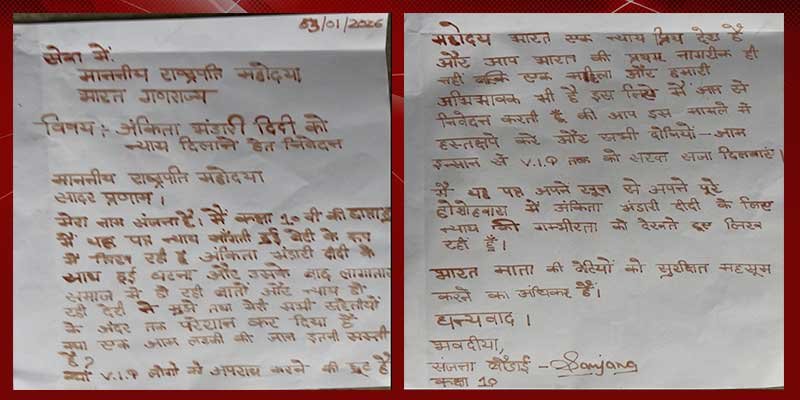 03/01/2026
सेवा में
माननीय राष्ट्रपति महोदया
भारत गणराज्य
विषय:- अंकिता भंडारी दिदी को
न्याय दिलाने हेतु निवेदन
माननीय राष्ट्रपति महोदया
सादर प्रणाम।
मेरा नाम संजना है। मैं कक्षा 10 वी की छात्रा हूं
में यह पत्र न्याय माँगती हुई बेटी के रूप
में लिख रही हूँ अंकिता भंडारी दीदी के
साथ हुई घटना और उसके बाद लागातार
समाज में हो रही बातों और न्याय हो
रही देरी ने मुझे तथा मेरी सभी सहेलीयों
के अंदर तक परेशान कर दिया है
क्या एक आम लडकी की जान इतनी सस्ती
है?
क्या V.I.P लोगों को अपराध करने की छूट है
महोदय भारत एक न्याय प्रिय देश है
और आप भारत की प्रथम नागरीक ही
नही बल्कि एक महिला और हमारी
अभिभावक भी है इस लिये मैं आप से
निवेदन करती हूँ की आप इस मामले में
हस्तक्षेप करे और सभी दोषियों - आम
इन्सान से V.I.P तक को सख्त सजा दिलवाएं।
मैं यह पत्र अपने खून से अपने पूरे
होशोहवाश में अंकिता भंडारी दीदी के लिए
न्याय की गम्भीरता को देखते हुए लिख
रही हूँ।
भारत माता की बेटियों को सुरक्षित महसूस
करने का अधिकार है।
धन्यवाद।
भवदीया,
संजना - Sanjana
कक्षा 10